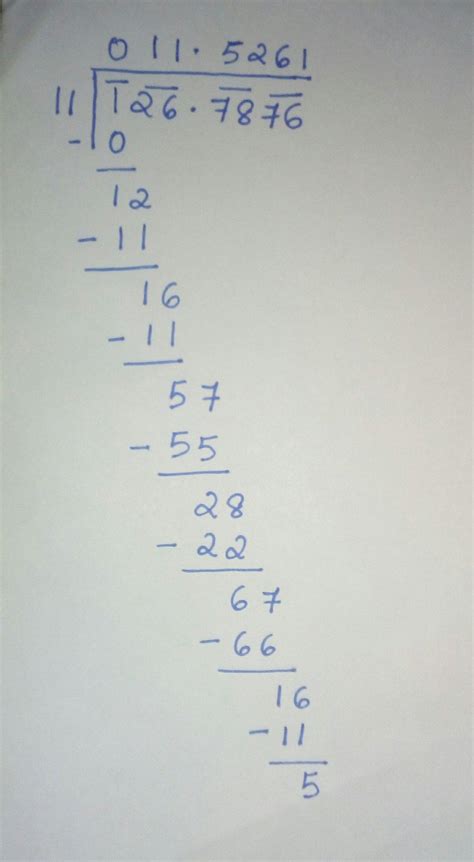 011.5261
11 126.7876
- 0
12
- 11
16
- 11
57
- 55
28
- 22
67
- 66
16
- 11
5